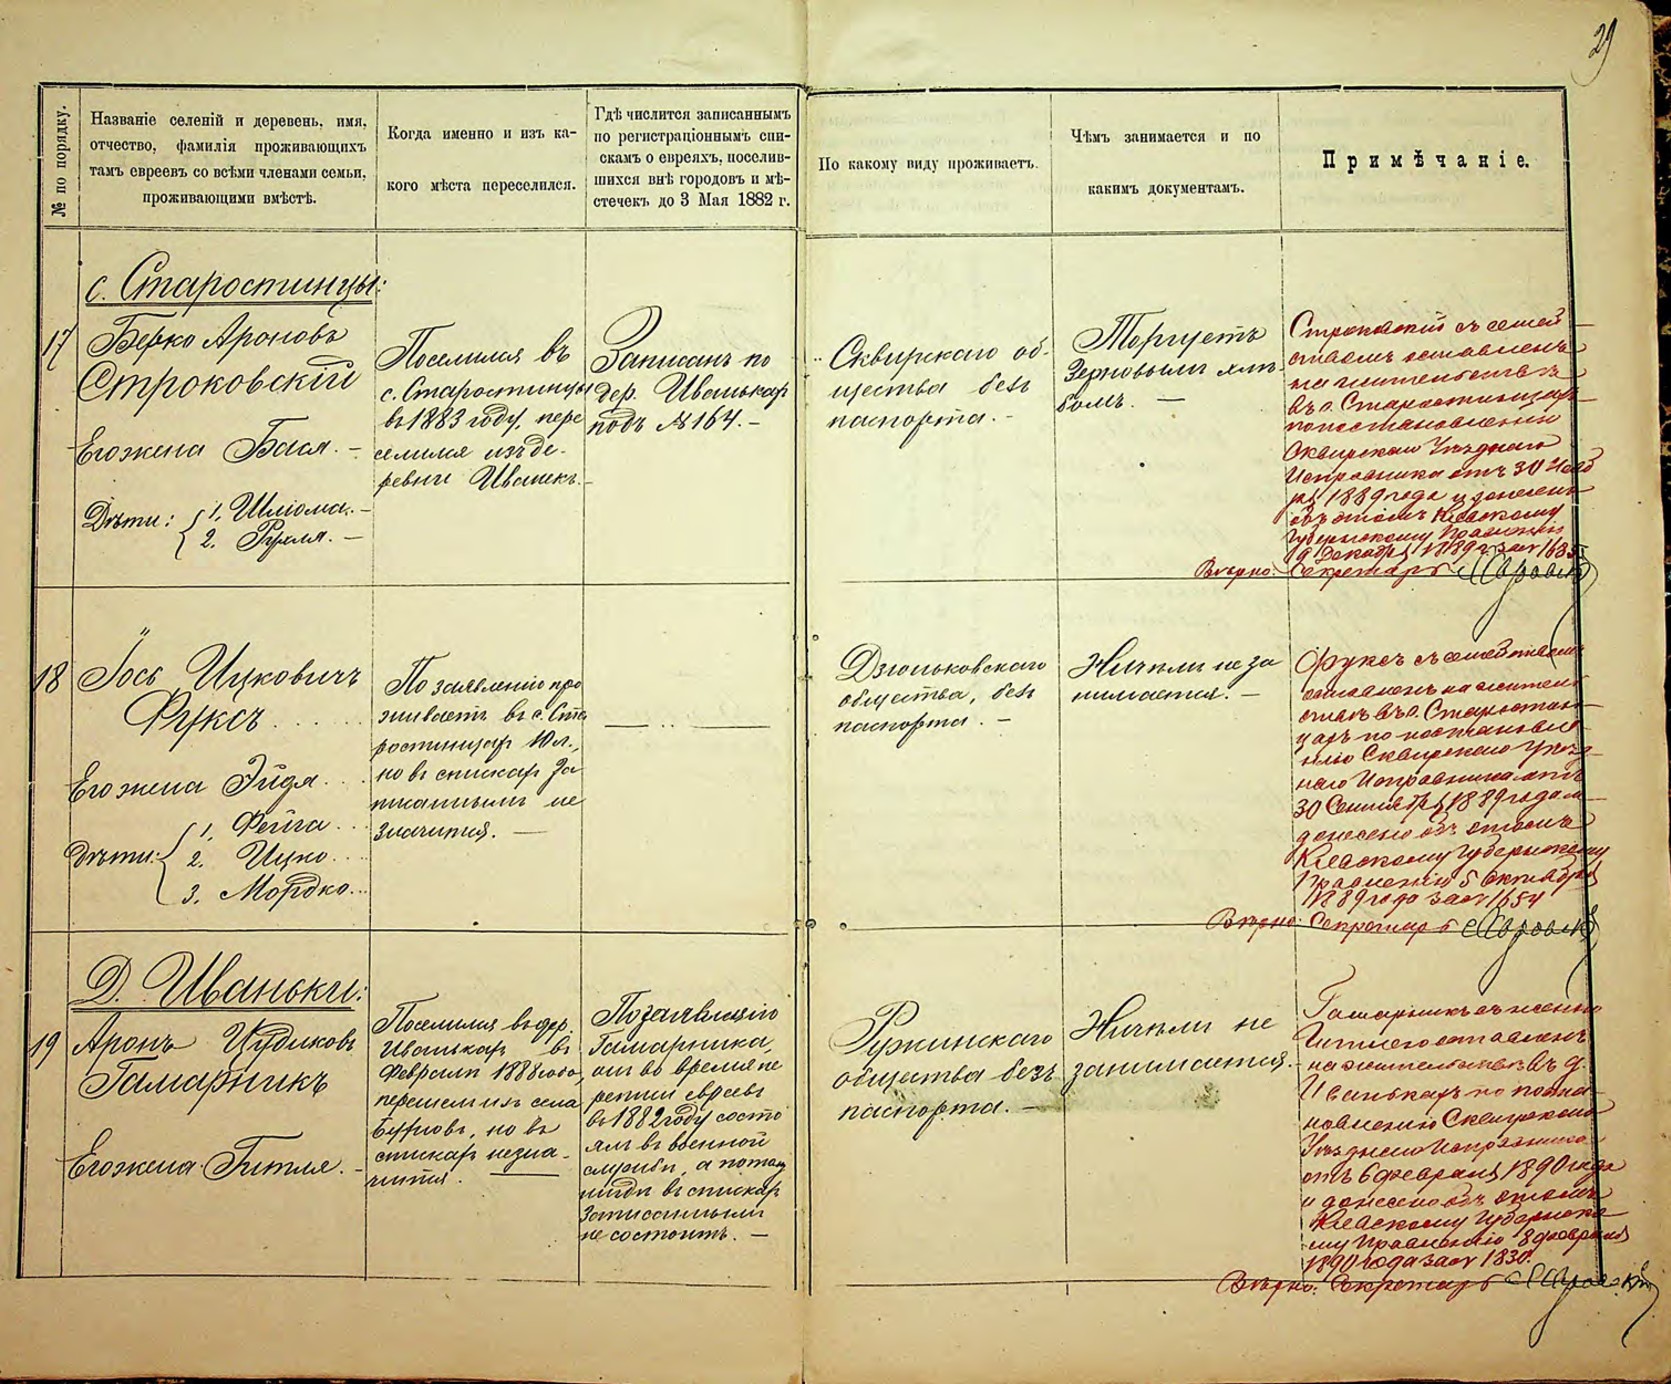 29
№ по порядку.
Названіе селеній и деревень, имя,
отчество, фамилія проживающихъ
тамъ евреевъ со всѣми членами семьи,
проживающими вмѣстѣ.
Когда именно и изъ ка-
кого мѣста переселился.
Гдѣ числится записаннымъ
по регистраціоннымъ спи-
скамъ о евреяхъ, поселив-
шихся внѣ городовъ и мѣ-
стечекъ до 3 Мая 1882 г.
По какому виду проживаетъ.
Чѣмъ занимается и по
какимъ документамъ.
Примѣчаніе.
с. Старостинцы:
17
Берко Ароновъ
Строковскій
Его жена Бася. –
Дѣти: 1. Шлiома. –
2. Рухля. –
Поселился въ
с. Старостинцы
въ 1883 году, пере
селился изъ де-
ревни Иванекъ. –
Записанъ по
дер. Иванькахъ
подъ № 164. –
Сквирскаго об-
щества безъ
паспорта. –
Торгуетъ
зерновымъ хлѣ-
бомъ. –
съ семей
ствомъ оставленъ
на жительствѣ
въ с. Старостинцахъ
по постановленію
Сквирскаго Уѣзднаго
Исправника отъ 30 Нояб
ря 1889 года и донесено
объ этомъ Кіевскому
Губернскому Правленію
9 Декабря 1889 г. за №
Вѣрно: Секретарь
18
Іось Ицковичъ
Фуксъ
Его жена Эйдя.
Дѣти: 1. Фейга.
2. Ицко.
3. Мордко.
По заявленію про
живаетъ въ с. Ста
ростинцахъ 10 л.,
но въ спискахъ за
писаннымъ не
значится. –
Дзюньковскаго
общества, безъ
паспорта. –
Ничѣмъ не за
нимается. –
Фуксъ съ семействомъ
оставленъ на житель
ствѣ въ с. Старостин
цахъ по постановле
нію Сквирскаго Уѣзд
наго Исправника отъ
30 Сентября 1889 года и
донесено объ этомъ
Кіевскому Губернскому
Правленію 5 Октября
1889 года за № 1654
Вѣрно: Секретарь
Д. Иваньки:
19
Аронъ Юдиковъ
Гамарникъ
Его жена Гитля. –
Поселился въ дер.
Иванькахъ въ
Февралѣ 1888 года,
перешелъ изъ села
но въ
спискахъ не зна-
чится.
По заявленію
Гамарника,
онъ во время пе
реписи евреевъ
въ 1882 году состо
ялъ въ военной
службѣ, а потому
нигдѣ въ спискахъ
записаннымъ
не состоитъ. –
Ружинскаго
общества безъ
паспорта. –
Ничѣмъ не
занимается. –
Гамарникъ съ женою
Гитлею оставленъ
на жительствѣ въ д.
Иванькахъ по поста
новленію Сквирскаго
Уѣзднаго Исправника
отъ 6 февраля 1890 года
и донесено объ этомъ
Кіевскому Губернско
му Правленію 8 февраля
1890 года за № 1830.
Вѣрно: Секретарь